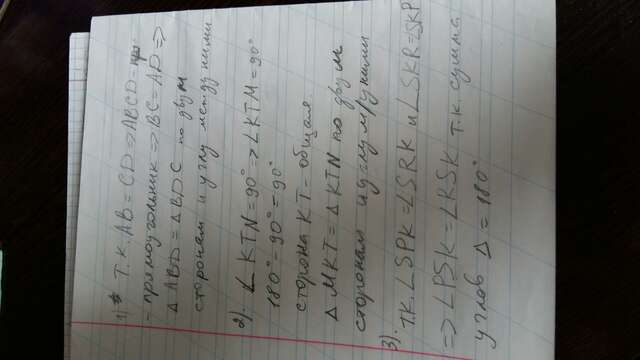 1) Т.к. AB = CD => ABCD - пр
- прямоугольник => BC = AD =>
Δ ABD = Δ BDC по двум
сторонам и углу между ними
2). ∠ KTN = 90° => ∠ KTM = 90°
180° - 90° = 90°
сторона KT - общая.
Δ MKT = Δ KTN по двум
сторонам и углу м/у ними
3). Т.к. ∠SPK = ∠SRK и ∠SKR = SKP
=> ∠PSK = ∠RSK т.к. сумма
углов Δ = 180°